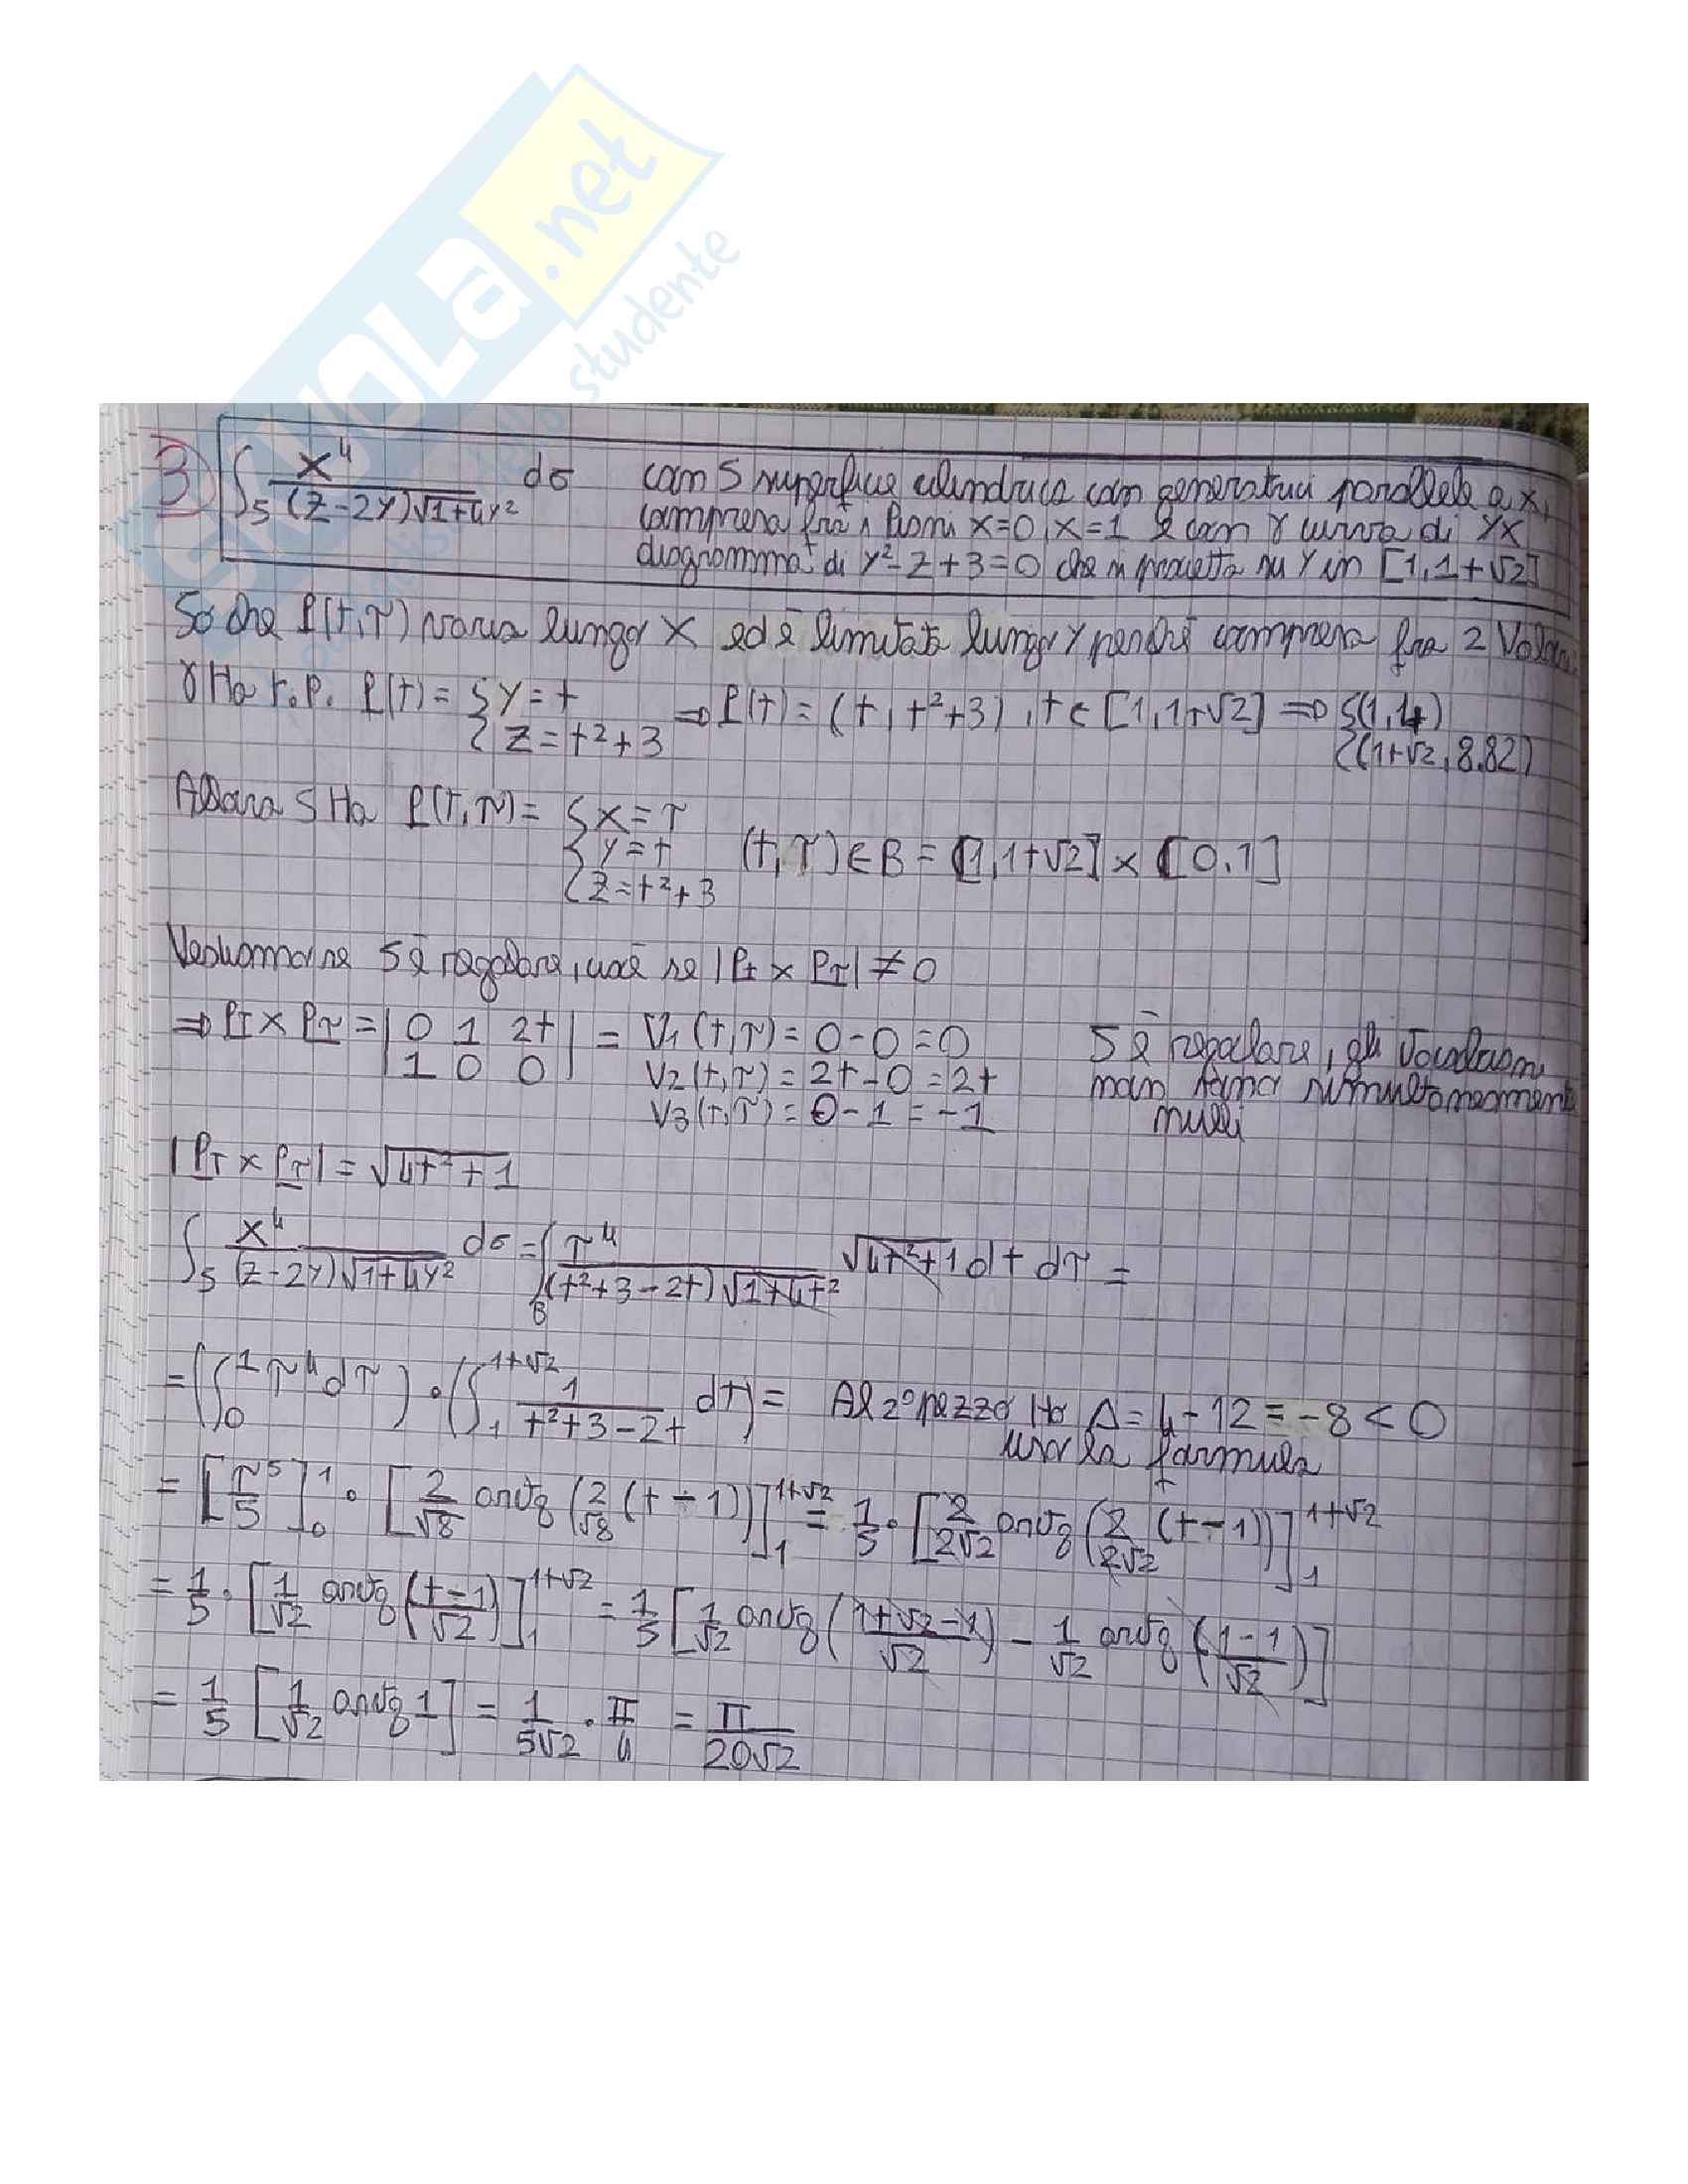 SKUOLA.net
studente
3) ∫S x⁴/((z-2y)√1+4y²) dσ con S superficie cilindrica con generatrici parallele a x,
compresa fra i piani x=0, x=1 e con γ curva di YX
diagramma di y²-z+3=0 che si proietta su Y in [1,1+√2]
So che P(t,τ) varia lungo X ed è limitata lungo Y perché compresa fra 2 Valori
γ Ha r.p. P(t) = { y=t { z=t²+3 ⇒ P(t) = (t, t²+3), t∈[1,1+√2] ⇒ { (1,4) { (1+√2, 8.82)
Allora S Ha P(t,τ) = { x=τ { y=t { z=t²+3 (t,τ)∈B = [1,1+√2] × [0,1]
Vediamo se S è regolare, cioè se |Pt × Pτ| ≠ 0
⇒ Pt × Pτ = | 0 1 2t | 1 0 0 | = V1(t,τ) = 0-0 = 0
V2(t,τ) = 2t-0 = 2t
V3(t,τ) = 0-1 = -1
S è regolare, gli Jacobiani
non sono simultaneamente
nulli
|Pt × Pτ| = √4t²+1
∫S x⁴/((z-2y)√1+4y²) dσ = ∫B τ⁴/((t²+3-2t)√1+4t²) √4t²+1 dt dτ =
= (∫₀¹ τ⁴dτ) • (∫₁^(1+√2) 1/(t²+3-2t) dt) = Al 2° pezzo Ho Δ = 4-12 = -8 < 0
uso la formula
= [τ⁵/5]₀¹ • [2/√8 arctg (2/√8 (t-1))]₁^(1+√2) = 1/5 • [2/2√2 arctg (2/2√2 (t-1))]₁^(1+√2)
= 1/5 • [1/√2 arctg ((t-1)/√2)]₁^(1+√2) = 1/5 [1/√2 arctg ((1+√2-1)/√2) - 1/√2 arctg ((1-1)/√2)]
= 1/5 [1/√2 arctg 1] = 1/5√2 • π/4 = π/20√2